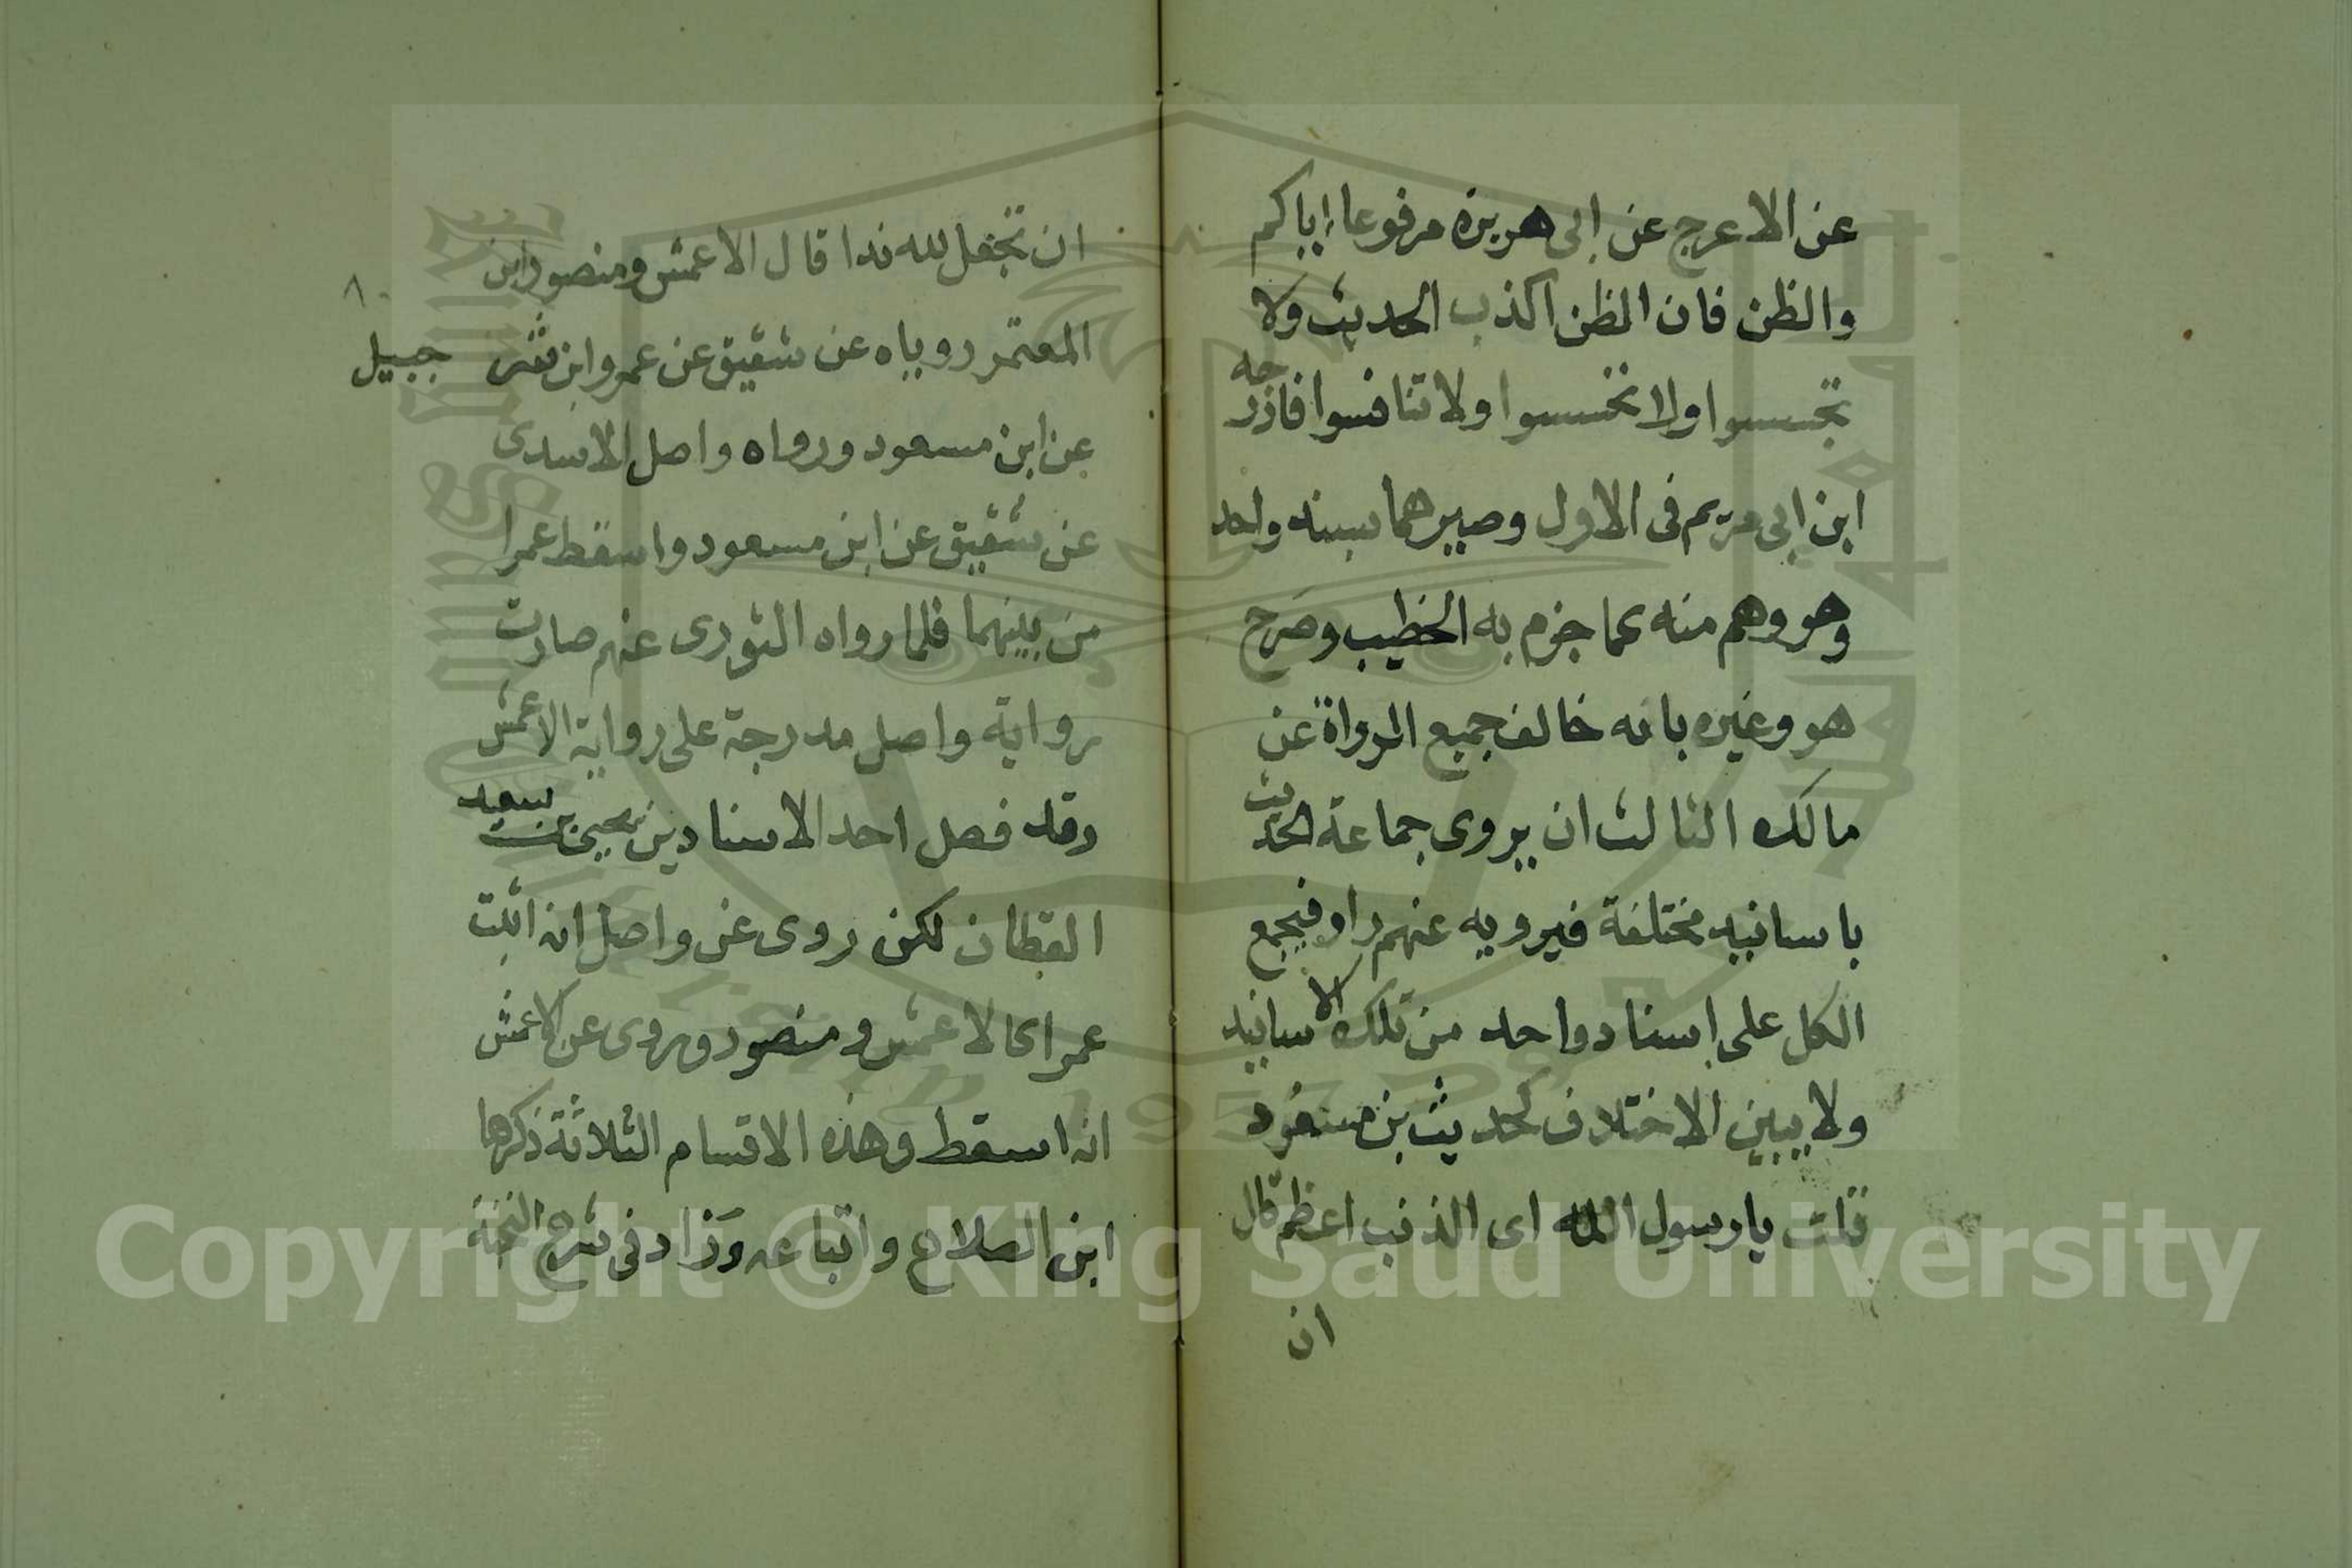 عن الاعرج عن ابى هريرة مرفوعا اياكم
والظن فان الظن اكذب الحديث ولا
تجسسوا ولا تحسسوا ولا تنافسوا فادرجه
ابن ابى مريم فى الاول وصيرهما بسند واحد
وهو وهم منه كما جزم به الخطيب وصرح
هو وغيره بانه خالف جميع الرواة عن
مالك الثالث ان يروى جماعة الحديث
باسانيد مختلفة فيرويه عنهم راو فيجمع
الكل على اسناد واحد من تلك الاسانيد
ولا يبين الاختلاف لحديث بن مسعود
قلت يا رسول الله اى الذنب اعظم قال
ان
٨
ان تجعل لله ندا قال الاعمش ومنصور ابن
المعتمر روياه عن شقيق عن عمرو ابن شر جبيل
عن ابن مسعود ورواه واصل الاسدى
عن شقيق عن ابن مسعود واسقط عمرا
من بينهما فلما رواه الثورى عنهم صارت
رواية واصل مدرجة على رواية الاعمش
وقد فصل احد الاسنادين يحيى بن سعيد
القطان لكن روى عن واصل انه اثبت
عمرا كالاعمش ومنصور وروى عن الاعمش
انه اسقط وهذه الاقسام الثلاثة ذكرها
ابن الصلاح واتباعه وزاد فى شرح النخبة
Copyright © King Saud University
1957